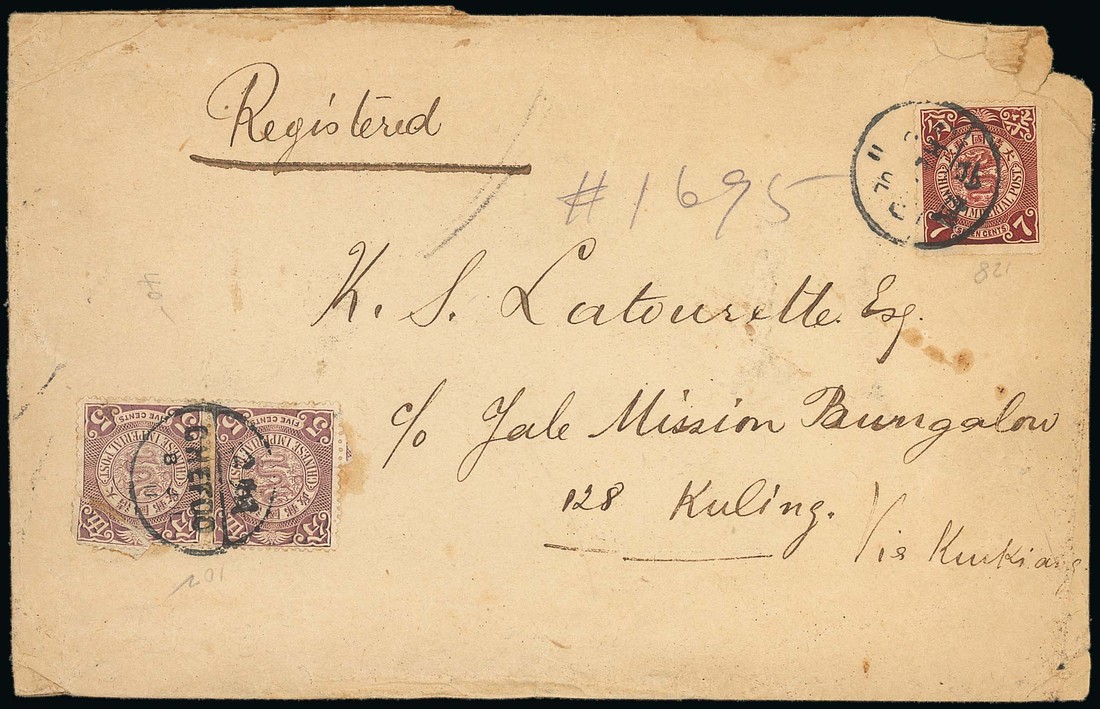 Registered
#1695
K. S. Latourette. Esq.
c/o Yale Mission Bungalow
128 Kuling.
Via Kiukiang
CHINESE IMPERIAL POST
7 SEVEN CENTS 7
821
40
5 FIVE CENTS 5
CHINESE IMPERIAL POST
5 FIVE CENTS 5
CHINESE IMPERIAL POST
CHEFOO